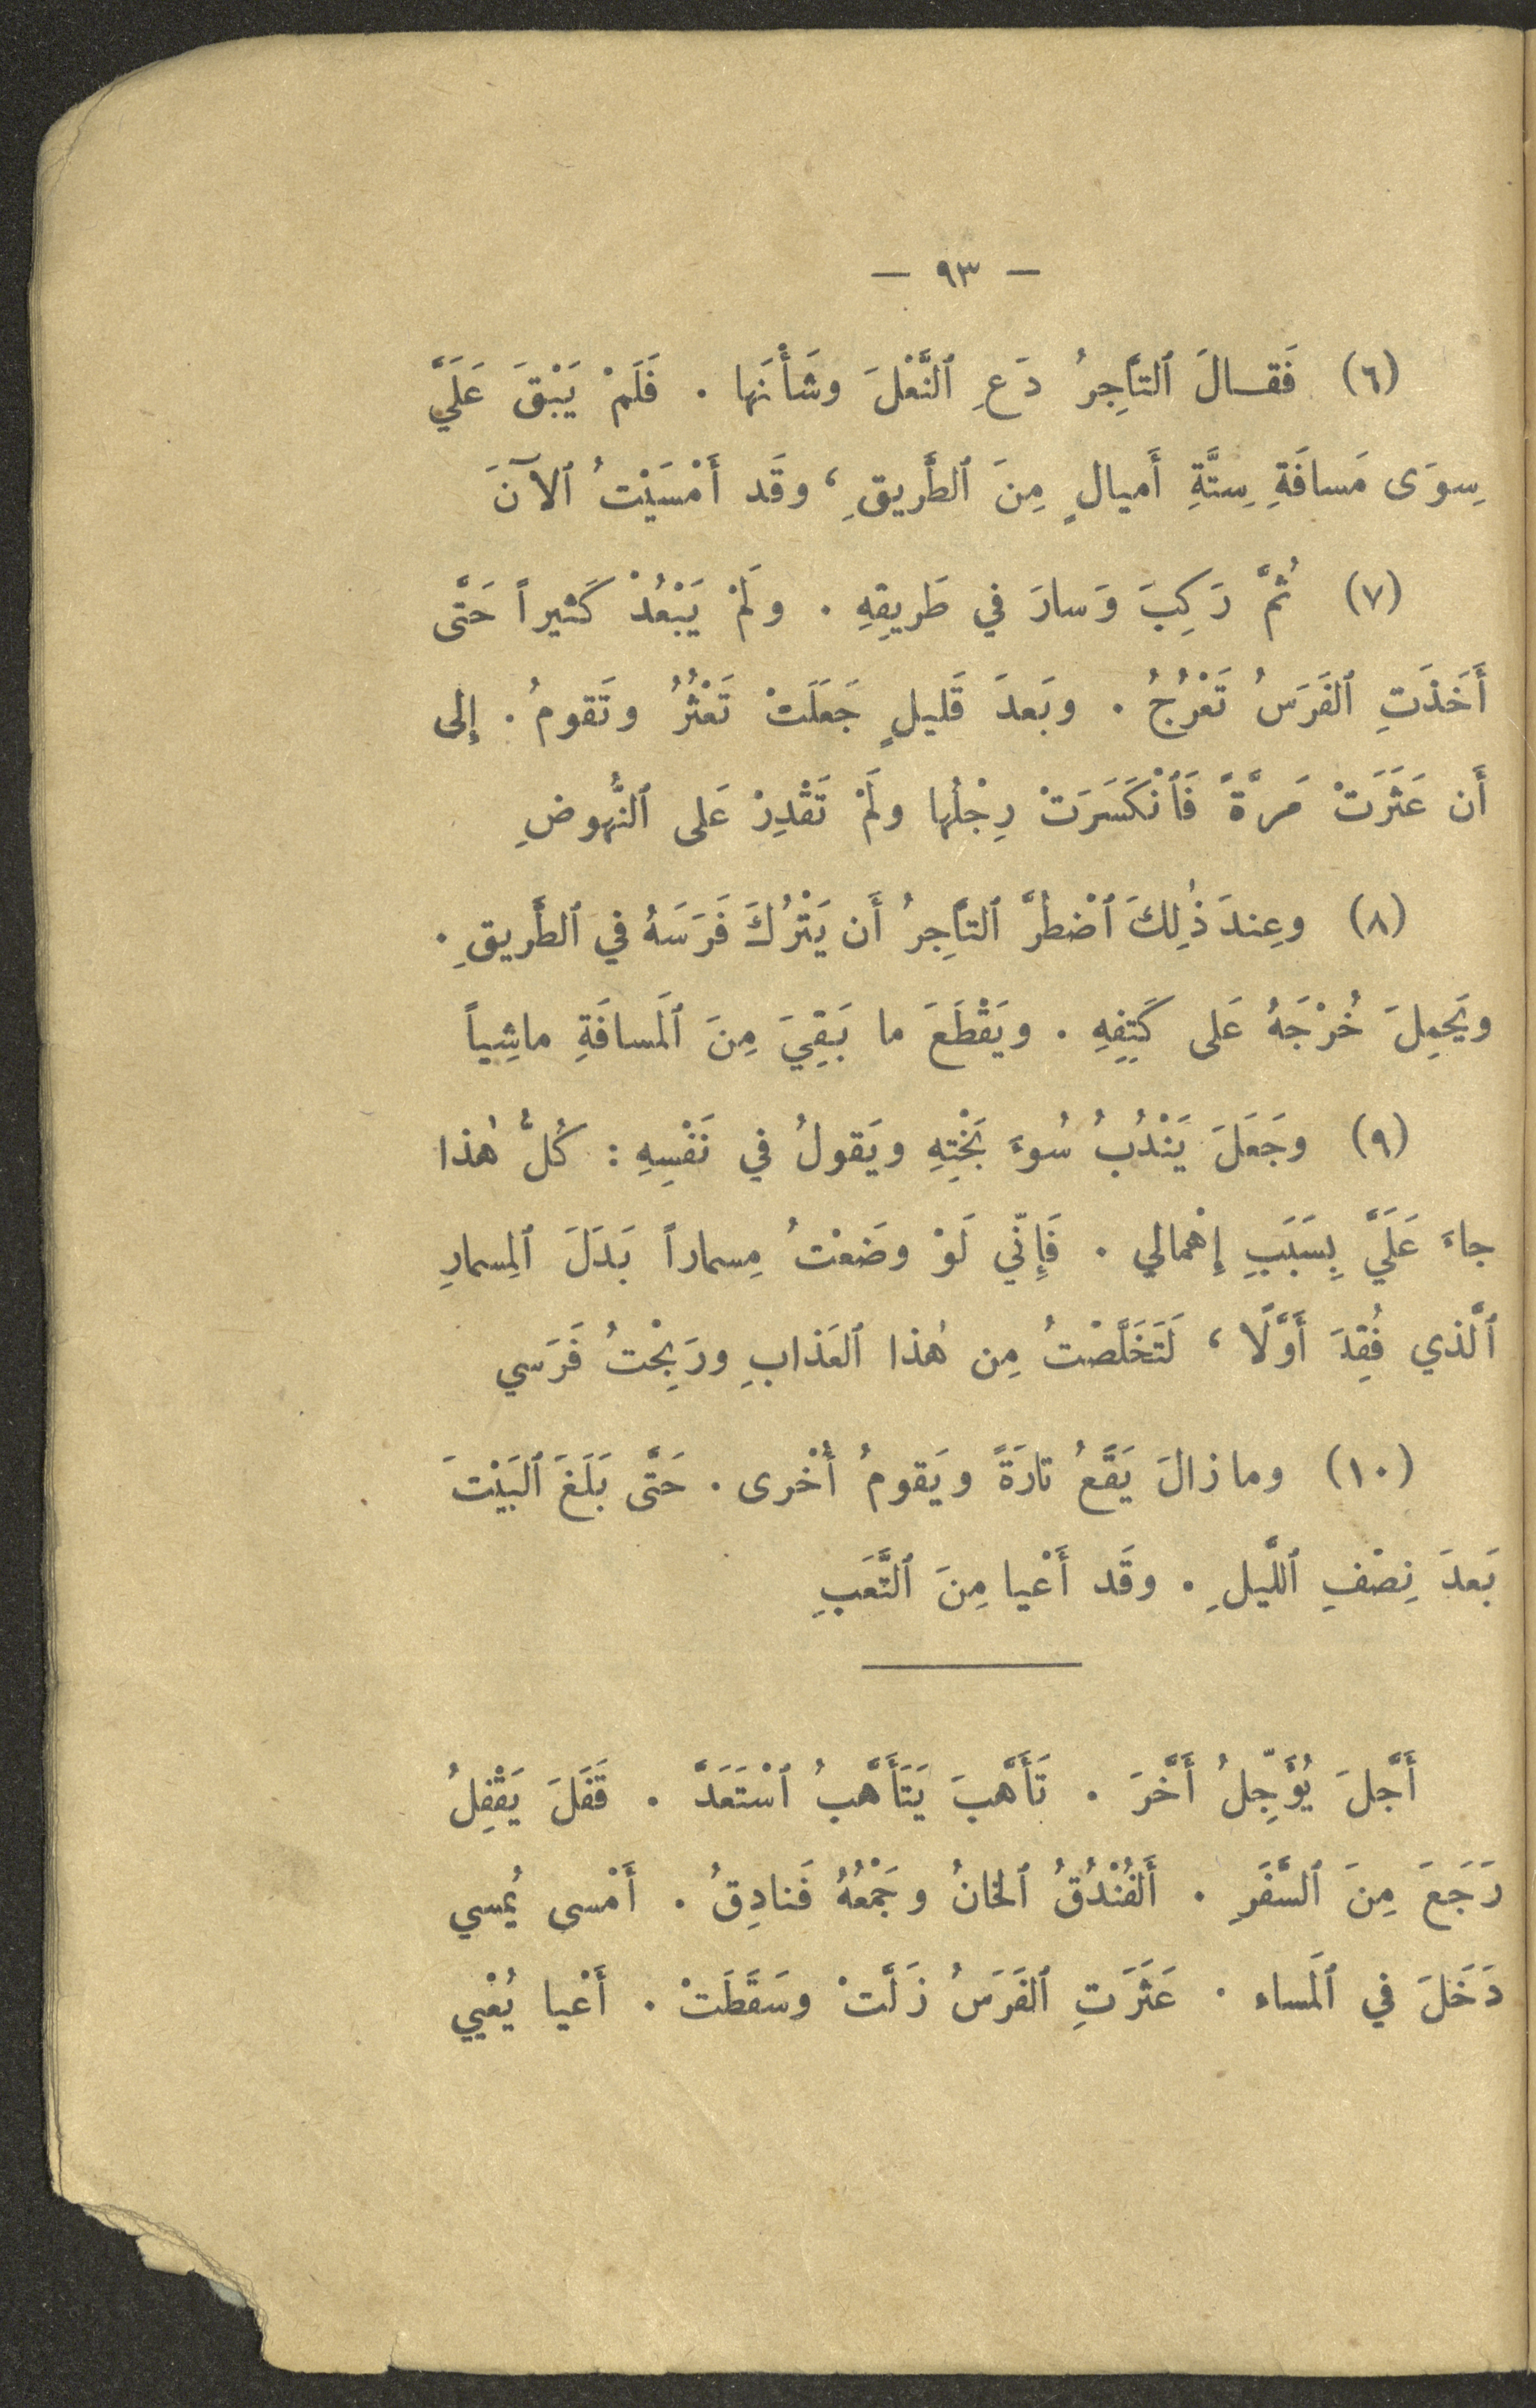 — ٩٣ —
(٦) فَقـالَ ٱلتاَّجِرُ دَعِ ٱلنَّعْلَ وشَأْنَها . فَلَمْ يَبْقَ عَلَيَّ
سِوَى مَسافَةِ سِتَّةِ أَميالٍ مِنَ ٱلطَّريقِ ، وقَد أَمْسَيْتُ ٱلآنَ
(٧) ثُمَّ رَكِبَ وَسارَ في طَريقِهِ . ولَمْ يَبْعُدْ كَثيراً حَتَّى
أَخَذَتِ ٱلفَرَسُ تَعْرُجُ . وبَعدَ قَليلٍ جَعَلَتْ تَعْثُرُ وتَقومُ . إِلى
أَن عَثَرَتْ مَرَّةً فَٱنْكَسَرَتْ رِجْلُها ولَمْ تَقْدِرْ عَلى ٱلنُّهوضِ
(٨) وعِندَ ذٰلِكَ ٱضْطُرَّ ٱلتاَّجِرُ أَن يَتْرُكَ فَرَسَهُ في ٱلطَّريقِ .
ويَحمِلَ خُرْجَهُ عَلى كَتِفِهِ . ويَقْطَعَ ما بَقِيَ مِنَ ٱلَمسافَةِ ماشِياً
(٩) وجَعَلَ يَنْدُبُ سُوءَ بَخْتِهِ ويَقولُ في نَفْسِهِ : كُلُّ هٰذا
جاءَ عَلَيَّ بِسَبَبِ إِهْمالي . فَإِنّي لَوْ وضَعْتُ مِسماراً بَدَلَ ٱلمِسمارِ
ٱلَّذي فُقِدَ أَوَّلًا ، لَتَخَلَّصْتُ مِن هٰذا ٱلعَذابِ ورَبِحْتُ فَرَسي
(١٠) وما زالَ يَقَعُ تارَةً ويَقومُ أُخْرى . حَتَّى بَلَغَ ٱلبَيْتَ
بَعدَ نِصْفِ ٱللَّيلِ . وقَد أَعْيا مِنَ ٱلتَّعَبِ
أَجَّلَ يُؤَجِّلُ أَخَّرَ . تَأَهَّبَ يَتَأَهَّبُ ٱسْتَعَدَّ . قَفَلَ يَقْفِلُ
رَجَعَ مِنَ ٱلسَّفَرِ . أَلفُنْدُقُ ٱلخانُ وجَمْعُهُ فَنادِقُ . أَمْسى يُمسي
دَخَلَ في ٱلَمساء . عَثَرَتِ ٱلفَرَسُ زَلَّتْ وسَقَطَتْ . أَعْيا يُعْيي